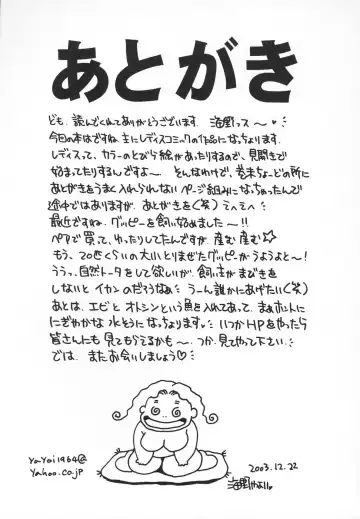 あとがき
ども、読んでくれてありがとうございます、海野っス〜♥
今回の本はですね、主にレディスコミックの作品になっちょります。
レディスって、カラーのとびら絵があったりするので、見開きで
始まってたりするんですよ〜 そんなわけで、巻末ちょーどの所に
あとがきをうまく入れられないページ組みになっちゃったんで
途中ではありますが、あとがきを(笑)ミへミへ
最近ですね、グッピーを飼い始めました〜!!
ペアで買って、ゆったりしてたんですが、産む産む☆
もう、20匹くらいの大小とりまぜたグッピーがうようよと〜!
ううっ、自然トータをして欲しいが、飼い主がまびきを
しないとイカンのだろうなぁ うーん誰かにあげたい(笑)
あとは、エビとオトシンという魚を入れてあって、まぁホントに
にぎやかな水そうになっちょります。いつかHPをやったら
皆さんにも見てもらえるかも〜、つか、見てやって下さい。
では、またお会いしましょう♡
YaYoi1964@
Yahoo.co.jp
2003.12.22
海野やよい。